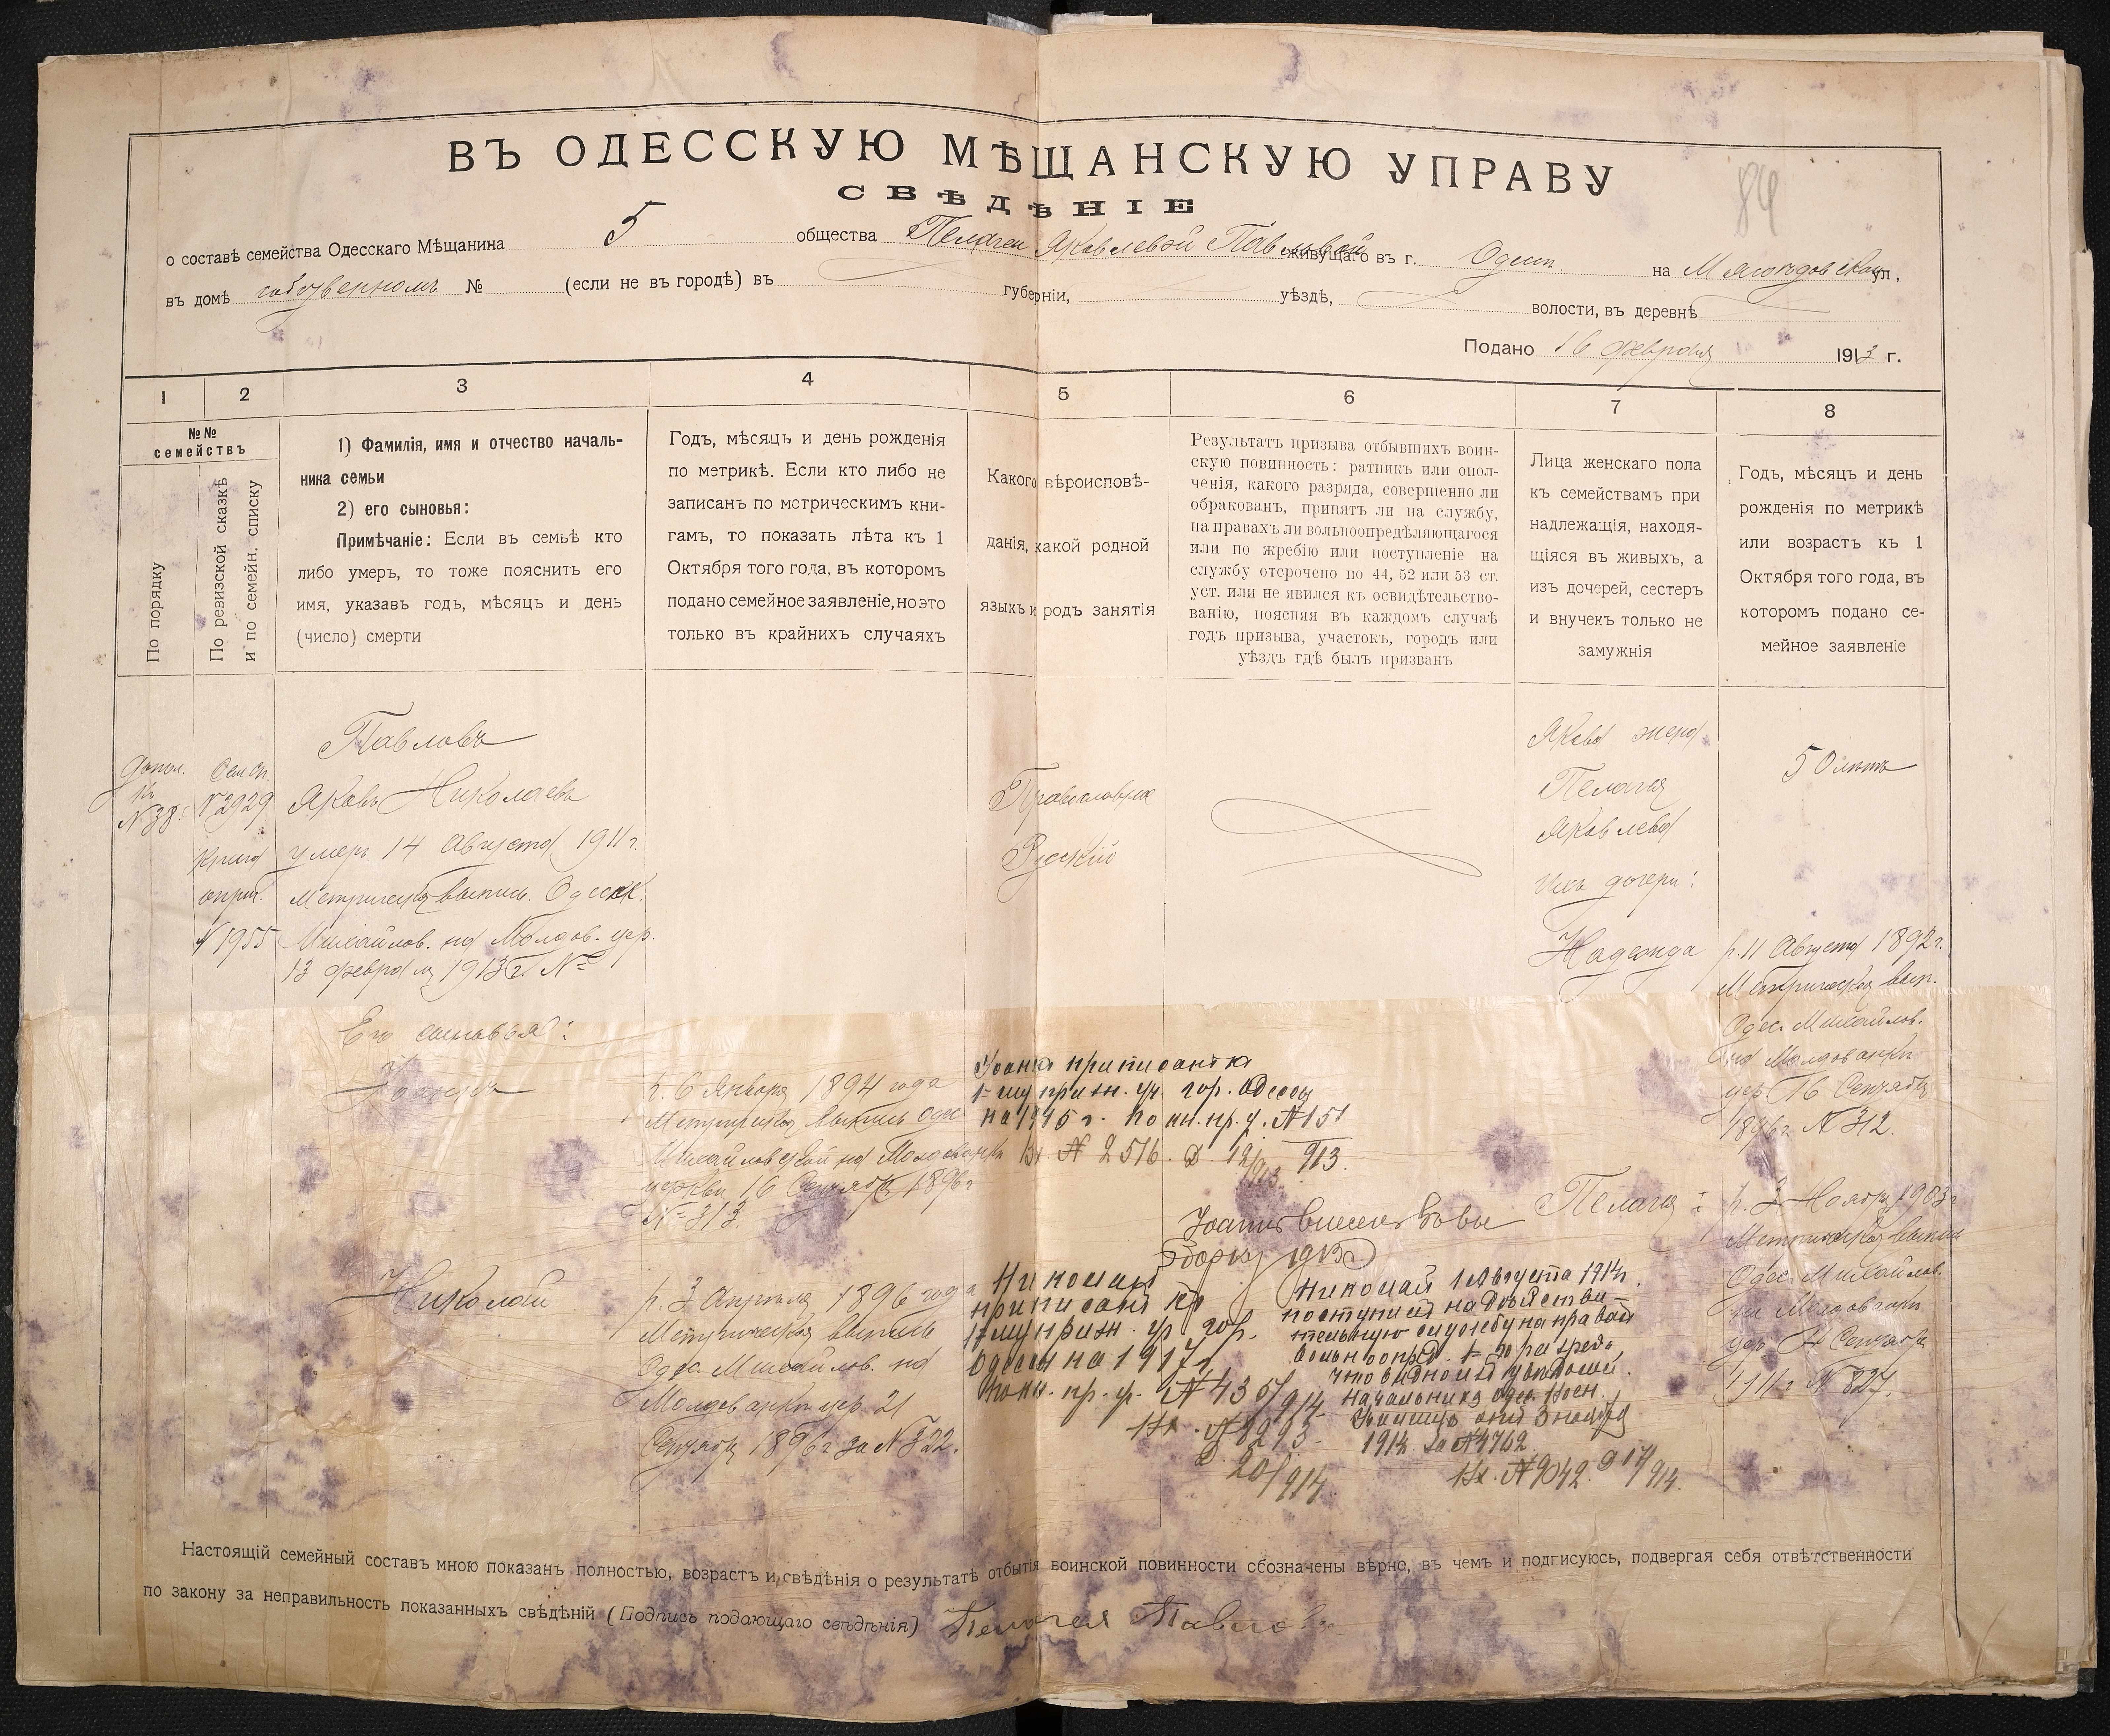 ВЪ ОДЕССКУЮ МѢЩАНСКУЮ УПРАВУ
84
СВѢДѢНІЕ
о составѣ семейства Одесскаго Мѣщанина 5 общества Пелагеи Яковлевой Павловой живущаго въ г. Одессѣ на Мясоѣдовской ул.,
въ домѣ собственномъ № (если не въ городѣ) въ губерніи, уѣздѣ, волости, въ деревнѣ
Подано 16 февраля 1913 г.
1 2 3 4 5 6 7 8
№№
семействъ
По порядку
По ревизской сказкѣ
и по семейн. списку
1) Фамилія, имя и отчество началь-
ника семьи
2) его сыновья:
Примѣчаніе: Если въ семьѣ кто
либо умеръ, то тоже пояснить его
имя, указавъ годъ, мѣсяцъ и день
(число) смерти
Годъ, мѣсяцъ и день рожденія
по метрикѣ. Если кто либо не
записанъ по метрическимъ кни-
гамъ, то показать лѣта къ 1
Октября того года, въ которомъ
подано семейное заявленіе, но это
только въ крайнихъ случаяхъ
Какого вѣроисповѣ-
данія, какой родной
языкъ и родъ занятія
Результатъ призыва отбывшихъ воин-
скую повинность: ратникъ или опол-
ченія, какого разряда, совершенно ли
обракованъ, принятъ ли на службу,
на правахъ ли вольноопредѣляющагося
или по жребію или поступленіе на
службу отсрочено по 44, 52 или 53 ст.
уст. или не явился къ освидѣтельство-
ванію, поясняя въ каждомъ случаѣ
годъ призыва, участокъ, городъ или
уѣздъ гдѣ былъ призванъ
Лица женскаго пола
къ семействамъ при
надлежащія, находя-
щіяся въ живыхъ, а
изъ дочерей, сестеръ
и внучекъ только не
замужнія
Годъ, мѣсяцъ и день
рожденія по метрикѣ
или возрастъ къ 1
Октября того года, въ
которомъ подано се-
мейное заявленіе
Допол.
къ
№ 38
Сем сп.
№ 2929
№ 1955
Павловъ
Яковъ Николаевъ
умеръ 14 Августа 1911 г.
Метрическая выпись Одесск.
Михайлов. на Молдов. цер.
13 февраля 1913 г. №
Его сыновья:
Іоаннъ
Николай
р. 6 Января 1894 года
Метрическая выпись Одес.
Михайловской на Молдованкѣ
церкви 16 Сентября 1896 г
№ 313.
р. 3 Апрѣля 1896 года
Метрическая выпись
Одес. Михайлов. на
Молдованкѣ цер. 21
Сентября 1896 г за № 322.
Православная
Русскій
Іоаннъ приписанъ къ
1-му приз. уч. гор. Одессы
на 1915 г. по кн. пр. у. № 151
Вх. № 2516. д. 12/913. 913.
Николай
приписанъ къ
1-му приз. уч. гор.
Одессы на 1917 г.
по кн. пр. у. № 435/914
Вх. № 8293
20/914.
Николай 1 Августа 1914 г.
поступилъ на дѣйстви-
тельную службу на правахъ
вольноопред. 1-го разряда,
что видно изъ увѣдомл.
Начальника Одес. Воен.
Училища отъ 3 ноября
1914 за № 4762
Вх. № 9042. 17/914.
Якова жена
Пелагея
Яковлева
ихъ дочери:
Надежда
Пелагея:
50 лѣтъ
р. 11 Августа 1892 г.
Метрическая вып.
Одес. Михайлов.
на Молдованкѣ
цер. 16 Сентября
1896 г. № 312.
р. 3 Ноября 1903 г
Метрическая выпись
Одес. Михайлов.
на Молдованкѣ
цер. Сентября
1911 г № 827.
Настоящій семейный составъ мною показанъ полностью, возрастъ и свѣдѣнія о результатѣ отбытія воинской повинности обозначены вѣрно, въ чемъ и подписуюсь, подвергая себя отвѣтственности
по закону за неправильность показанныхъ свѣдѣній (Подпись подающаго свѣдѣнія) Пелагея Павлова